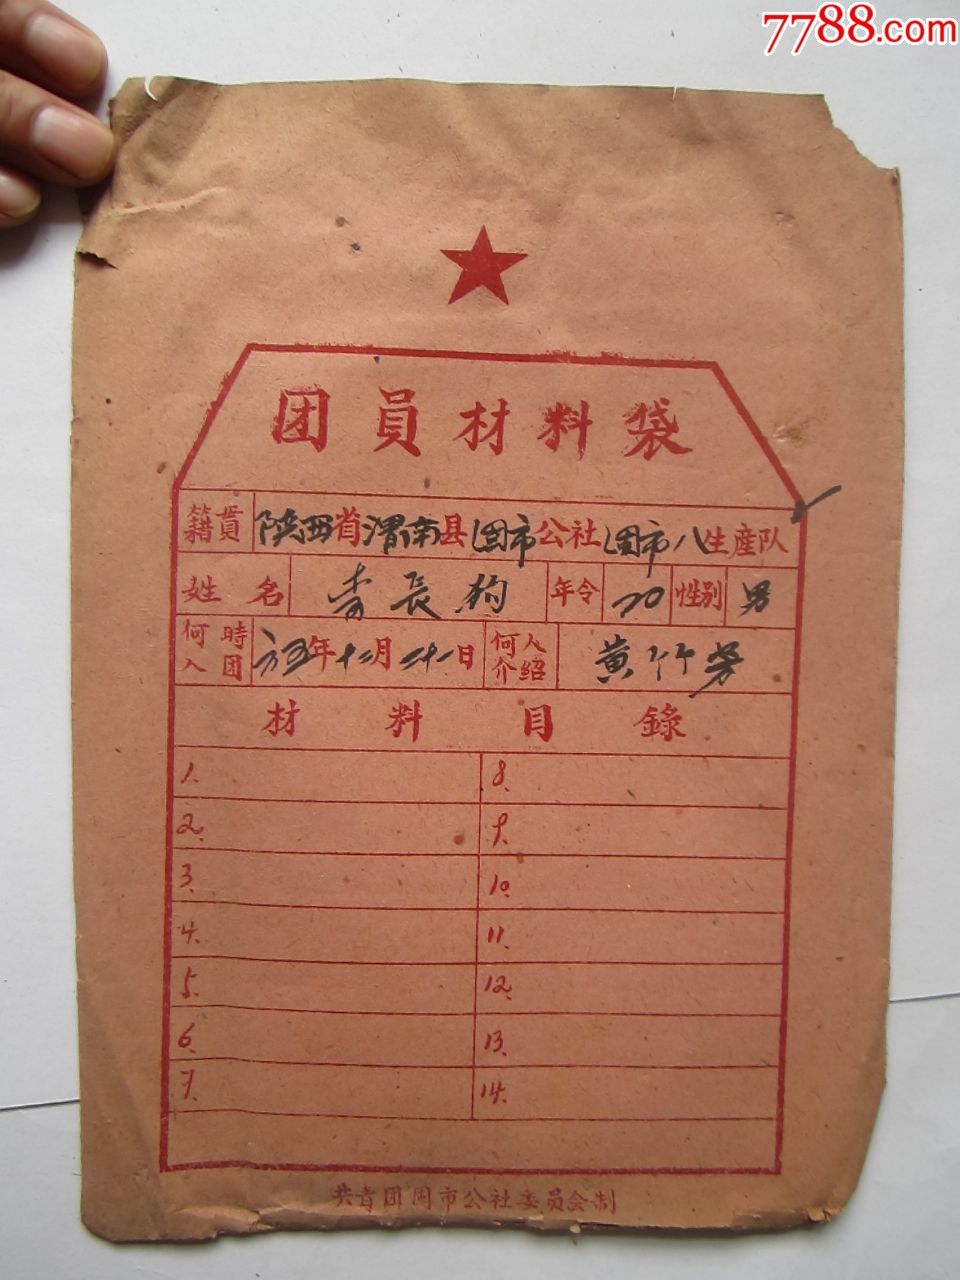 7788.com
团员材料袋
籍貫 陕西省渭南县固市公社固市八生産队
姓名 李長狗 年令 20 性别 男
何時入团 六五年十二月二十一日 何人介绍 黄竹
材料目錄
1. 8.
2. 9.
3. 10.
4. 11.
5. 12.
6. 13.
7. 14.
共青团固市公社委员会制